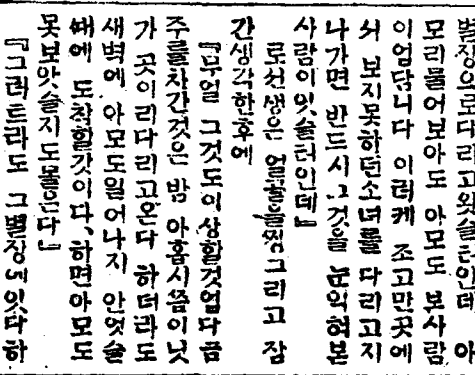 별장으로다리고왓슬터인데 아
모리물어보아도 아모도 본사람
이업답니다 이러케 조고만곳에
서 보지못하던소녀를 다리고지
나가면 반드시 그것을 눈익혀본
사람이잇슬터인데』
로선생은 얼골을찡그리고 잠
간생각한후에
『무얼 그것도이상할것업다 품
주를차간것은 밤 아홉시쯤이닛
가 곳이리다리고온다 하더라도
새벽에 아모도일어나지 안엇슬
때에 도착할것이다、하면아모도
못보앗슬지도몰은다』
『그러트라도 그별장에잇다하